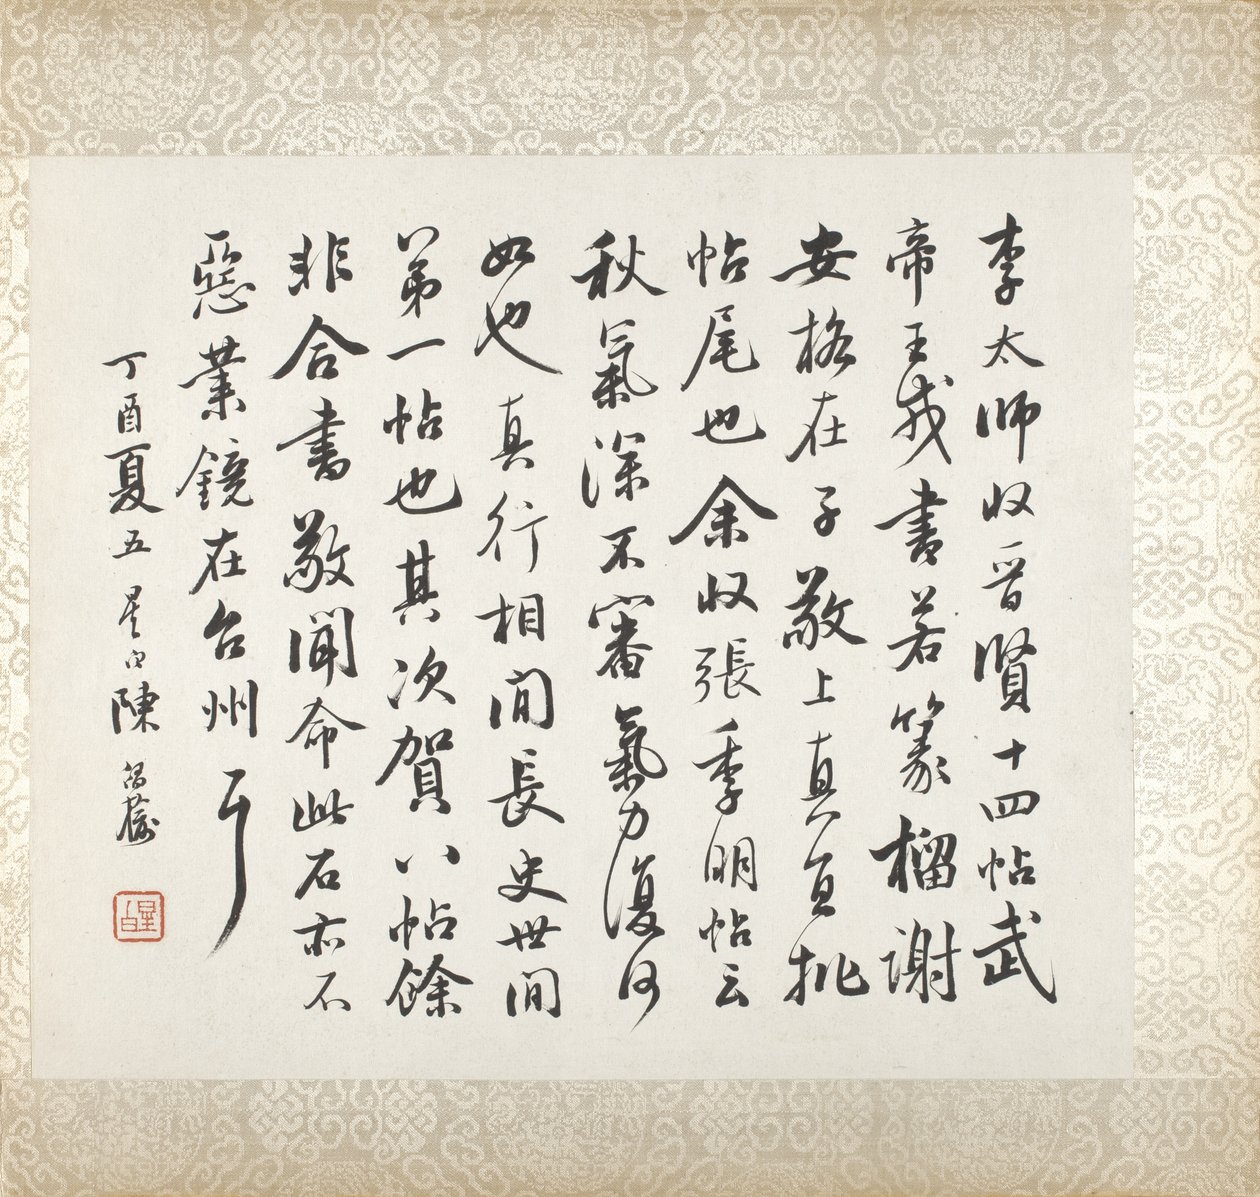 李太師收晉賢十四帖武
帝王戎書若篆榴謝
安格在子敬上真宜批
帖尾也余收張季明帖云
秋氣深不審氣力復何
如也真行相間長史世間
第一帖也其次賀八帖餘
非合書敬聞命此石亦不
惡業鏡在台州耳
丁酉夏五星白陳
星白